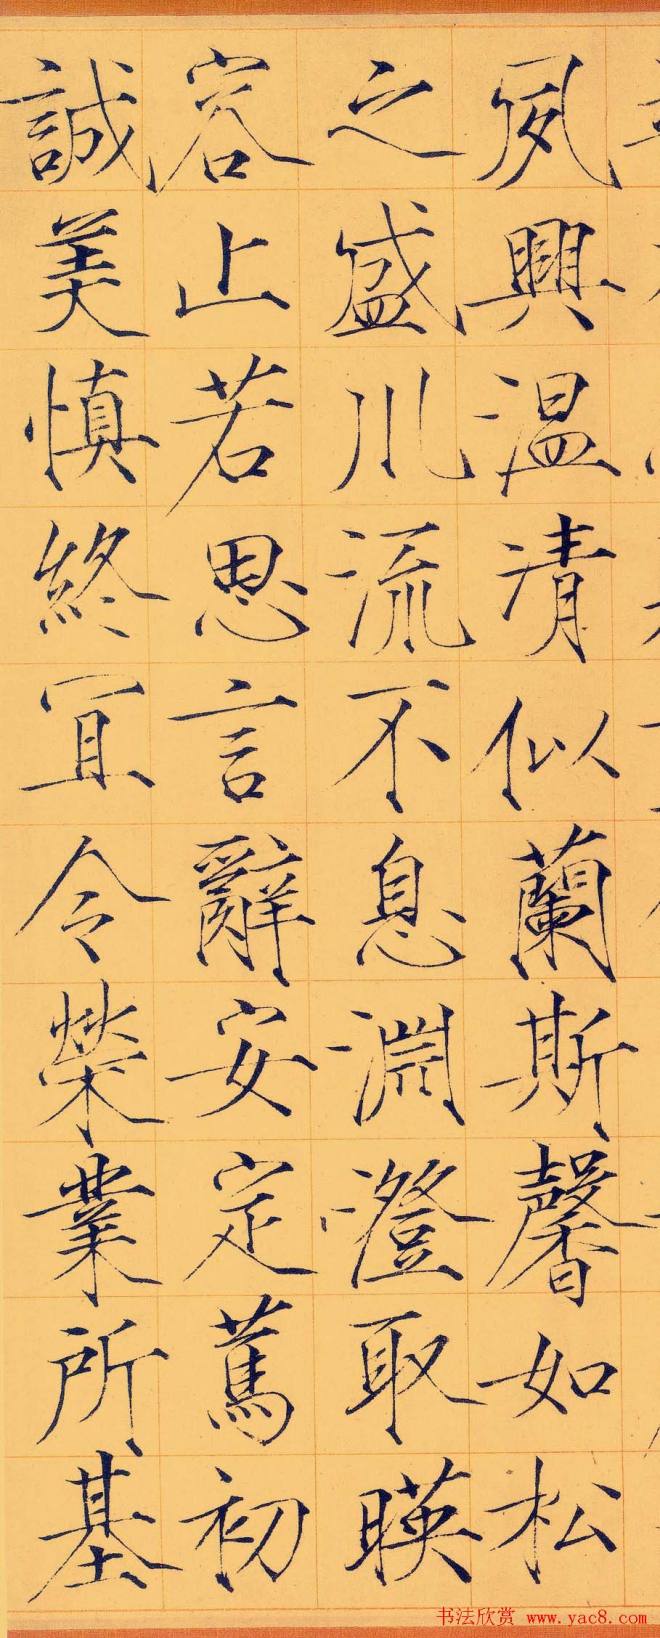 夙興温清似蘭斯馨如松
之盛川流不息淵澄取暎
容止若思言辭安定䔍初
誠美慎終冝令榮業所基
书法欣赏 www.yac8.com